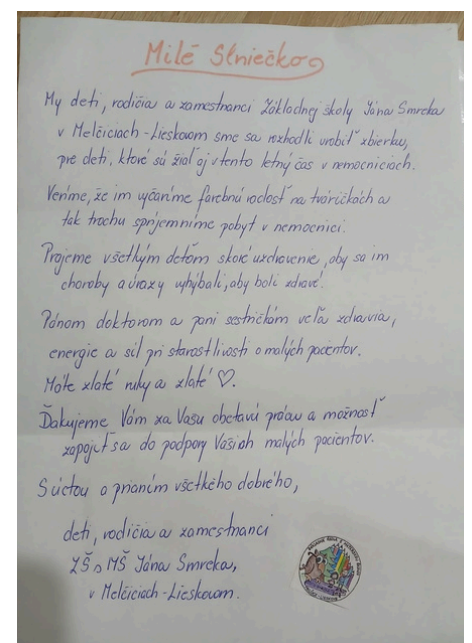 Milé Slniečko
My deti, rodičia a zamestnanci Základnej školy Jána Smreka
v Melčiciach-Lieskovom sme sa rozhodli urobiť zbierku,
pre deti, ktoré sú žiaľ aj v tento letný čas v nemocniciach.
Veríme, že im vyčaríme farebnú radosť na tváričkách a
tak trochu spríjemníme pobyt v nemocnici.
Prajeme všetkým deťom skoré uzdravenie, aby sa im
choroby a úrazy vyhýbali, aby boli zdravé.
Pánom doktorom a pani sestričkám veľa zdravia,
energie a síl pri starostlivosti o malých pacientov.
Máte zlaté ruky a zlaté ♡.
Ďakujeme Vám za Vašu obetavú prácu a možnosť
zapojiť sa do podpory Vašich malých pacientov.
S úctou a prianím všetkého dobrého,
deti, rodičia a zamestnanci
ZŠ s MŠ Jána Smreka,
v Melčiciach-Lieskovom.